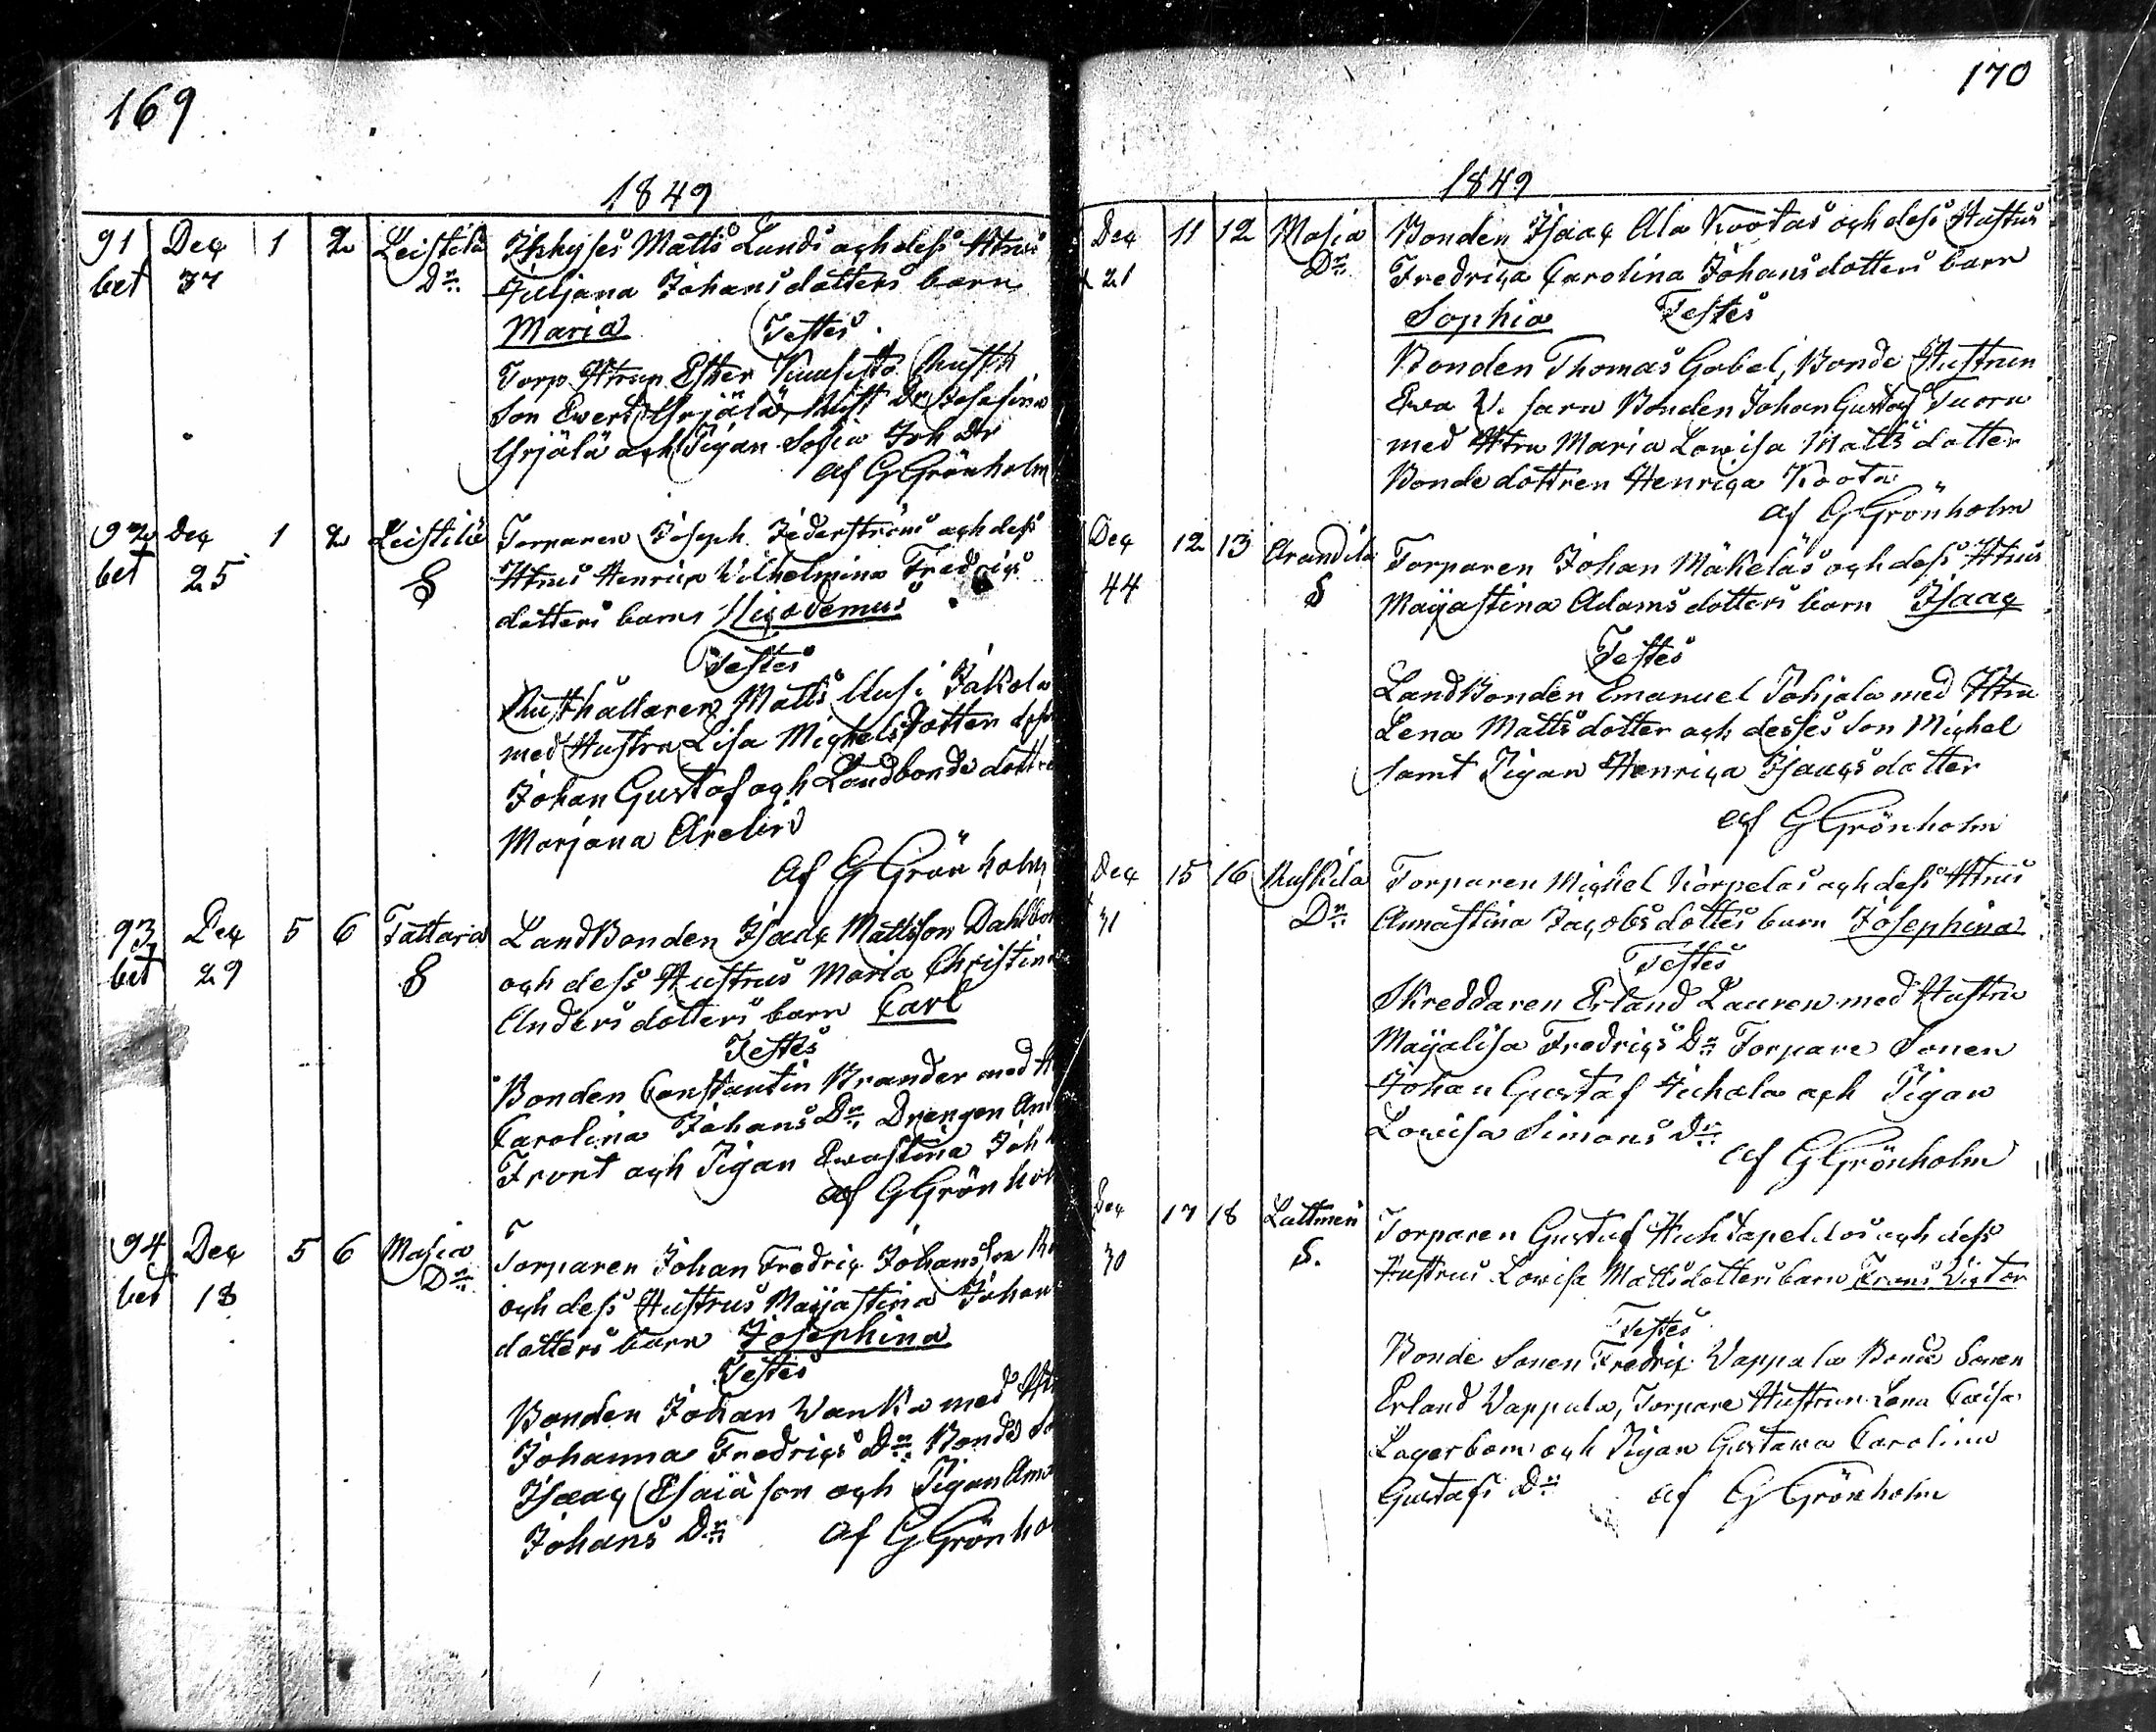 169
1849
91 Dec 1 2 Leistila Inhyses Matts Lunds och dess Hrus
bet 37 Dr. Juljana Johansdotters barn
Maria Testes
Torp Hrun Ester Kuusisto Rusth
Son Ewert Yrjälä, Rust Dr Josefina
Yrjälä och Pigan Sofia Joh Dr
af G Grönholm
92 Dec 1 2 Leistilä Torparen Joseph Federströms och dess
bet 25 S Hrus Henrica Wilhelmina Fredrics
dotters barn Nicodemus
Testes
Rusthållaren Matts Uusi Jakola
med Hustru Lisa Michelsdotter
Johan Gustaf och Landbonde dottren
Marjana Arelin
af G Grönholm
93 Dec 5 6 Tattara LandBonden Isaac Mattsson Dahlbom
bet 29 S och dess Hustrus Maria Christina
Andersdotters barn Carl
Testes
Bonden Constantin Brander med H
Carolina Johans Dr. Drengen And
Front och Pigan Evastina Joh
af G Grönhol
94 Dec 5 6 Masia Torparen Johan Fredric Johansson
bet 18 Dr. och dess Hustrus Maijastina Johans
dotters barn Josephina
Testes
Bonden Johan Wanka med
Johanna Fredrics Dr. Bonde So
Isaac Esaiason och Pigan Ana
Johans Dr. af G Grönho
170
1849
Dec 11 12 Masia Bonden Isaac Ala Kootas och dess Hustrus
21 Dr. Fredrica Carolina Johansdotters barn
Sophia Testes
Bonden Thomas Gabel, Bonde Hustrun
Ewa V. sara Bonden Johan Gustaf Tuorn
med Hru Maria Lowisa Mattsdotter
Bonde dottren Henrica Koota
af G Grönholm
Dec 12 13 Arandila Torparen Johan Mäkeläs och dess Hrus
44 S Maijastina Adamsdotters barn Isaac
Testes
LandBonden Emanuel Pohjala med Hru
Lena Mattsdotter och desses Son Michel
samt Pigan Henrica Isaacsdotter
af G Grönholm
Dec 15 16 Ruskila Torparen Michel Korpelas och dess Hrus
31 Dr. Annastina Jacobsdotters barn Josephina
Testes
Skreddaren Erland Lauren med Hustru
Maijalisa Fredrics Dr. Torpare Sonen
Johan Gustaf Juhola och Pigan
Lowisa Simons Dr.
af G Grönholm
Dec 17 18 Lattmeri Torparen Gustaf Huhtapeldos och dess
30 S. Hustrus Lowisa Mattsdotters barn Frans Victor
Testes
Bonde Sonen Fredric Wappula Bonde Sonen
Erland Wappula, Torpare Hustrun Lena Caisa
Lagerbom och Pigan Gustawa Carolina
Gustafs Dr. af G Grönholm